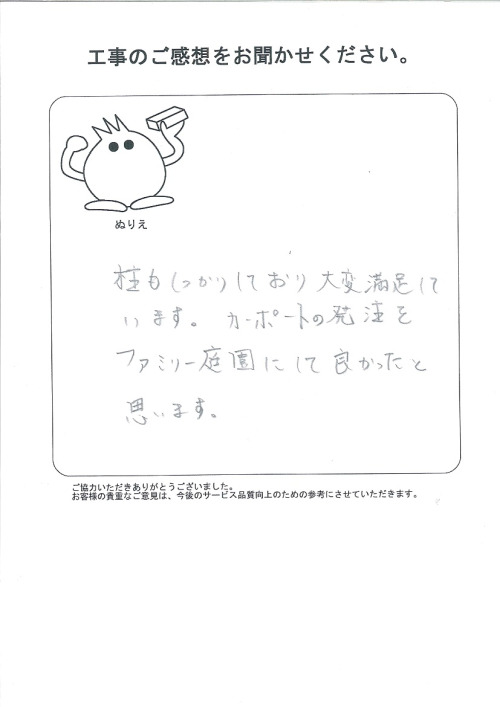 工事のご感想をお聞かせください。
ぬりえ
柱もしっかりしており大変満足して
います。カーポートの発注を
ファミリー庭園にして良かったと
思います。
ご協力いただきありがとうございました。
お客様の貴重なご意見は、今後のサービス品質向上のための参考にさせていただきます。